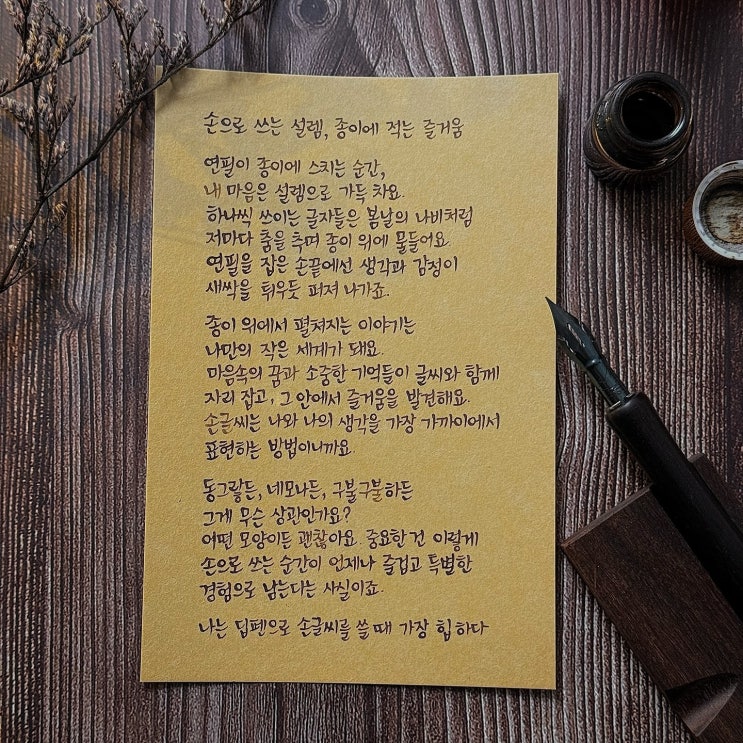 손으로 쓰는 설렘, 종이에 적는 즐거움
연필이 종이에 스치는 순간,
내 마음은 설렘으로 가득 차요.
하나씩 쓰이는 글자들은 봄날의 나비처럼
저마다 춤을 추며 종이 위에 물들어요.
연필을 잡은 손끝에선 생각과 감정이
새싹을 틔우듯 퍼져 나가죠.
종이 위에서 펼쳐지는 이야기는
나만의 작은 세계가 돼요.
마음속의 꿈과 소중한 기억들이 글씨와 함께
자리 잡고, 그 안에서 즐거움을 발견해요.
손글씨는 나와 나의 생각을 가장 가까이에서
표현하는 방법이니까요.
동그랗든, 네모나든, 구불구불하든
그게 무슨 상관인가요?
어떤 모양이든 괜찮아요. 중요한 건 이렇게
손으로 쓰는 순간이 언제나 즐겁고 특별한
경험으로 남는다는 사실이죠.
나는 딥펜으로 손글씨를 쓸 때 가장 힙하다